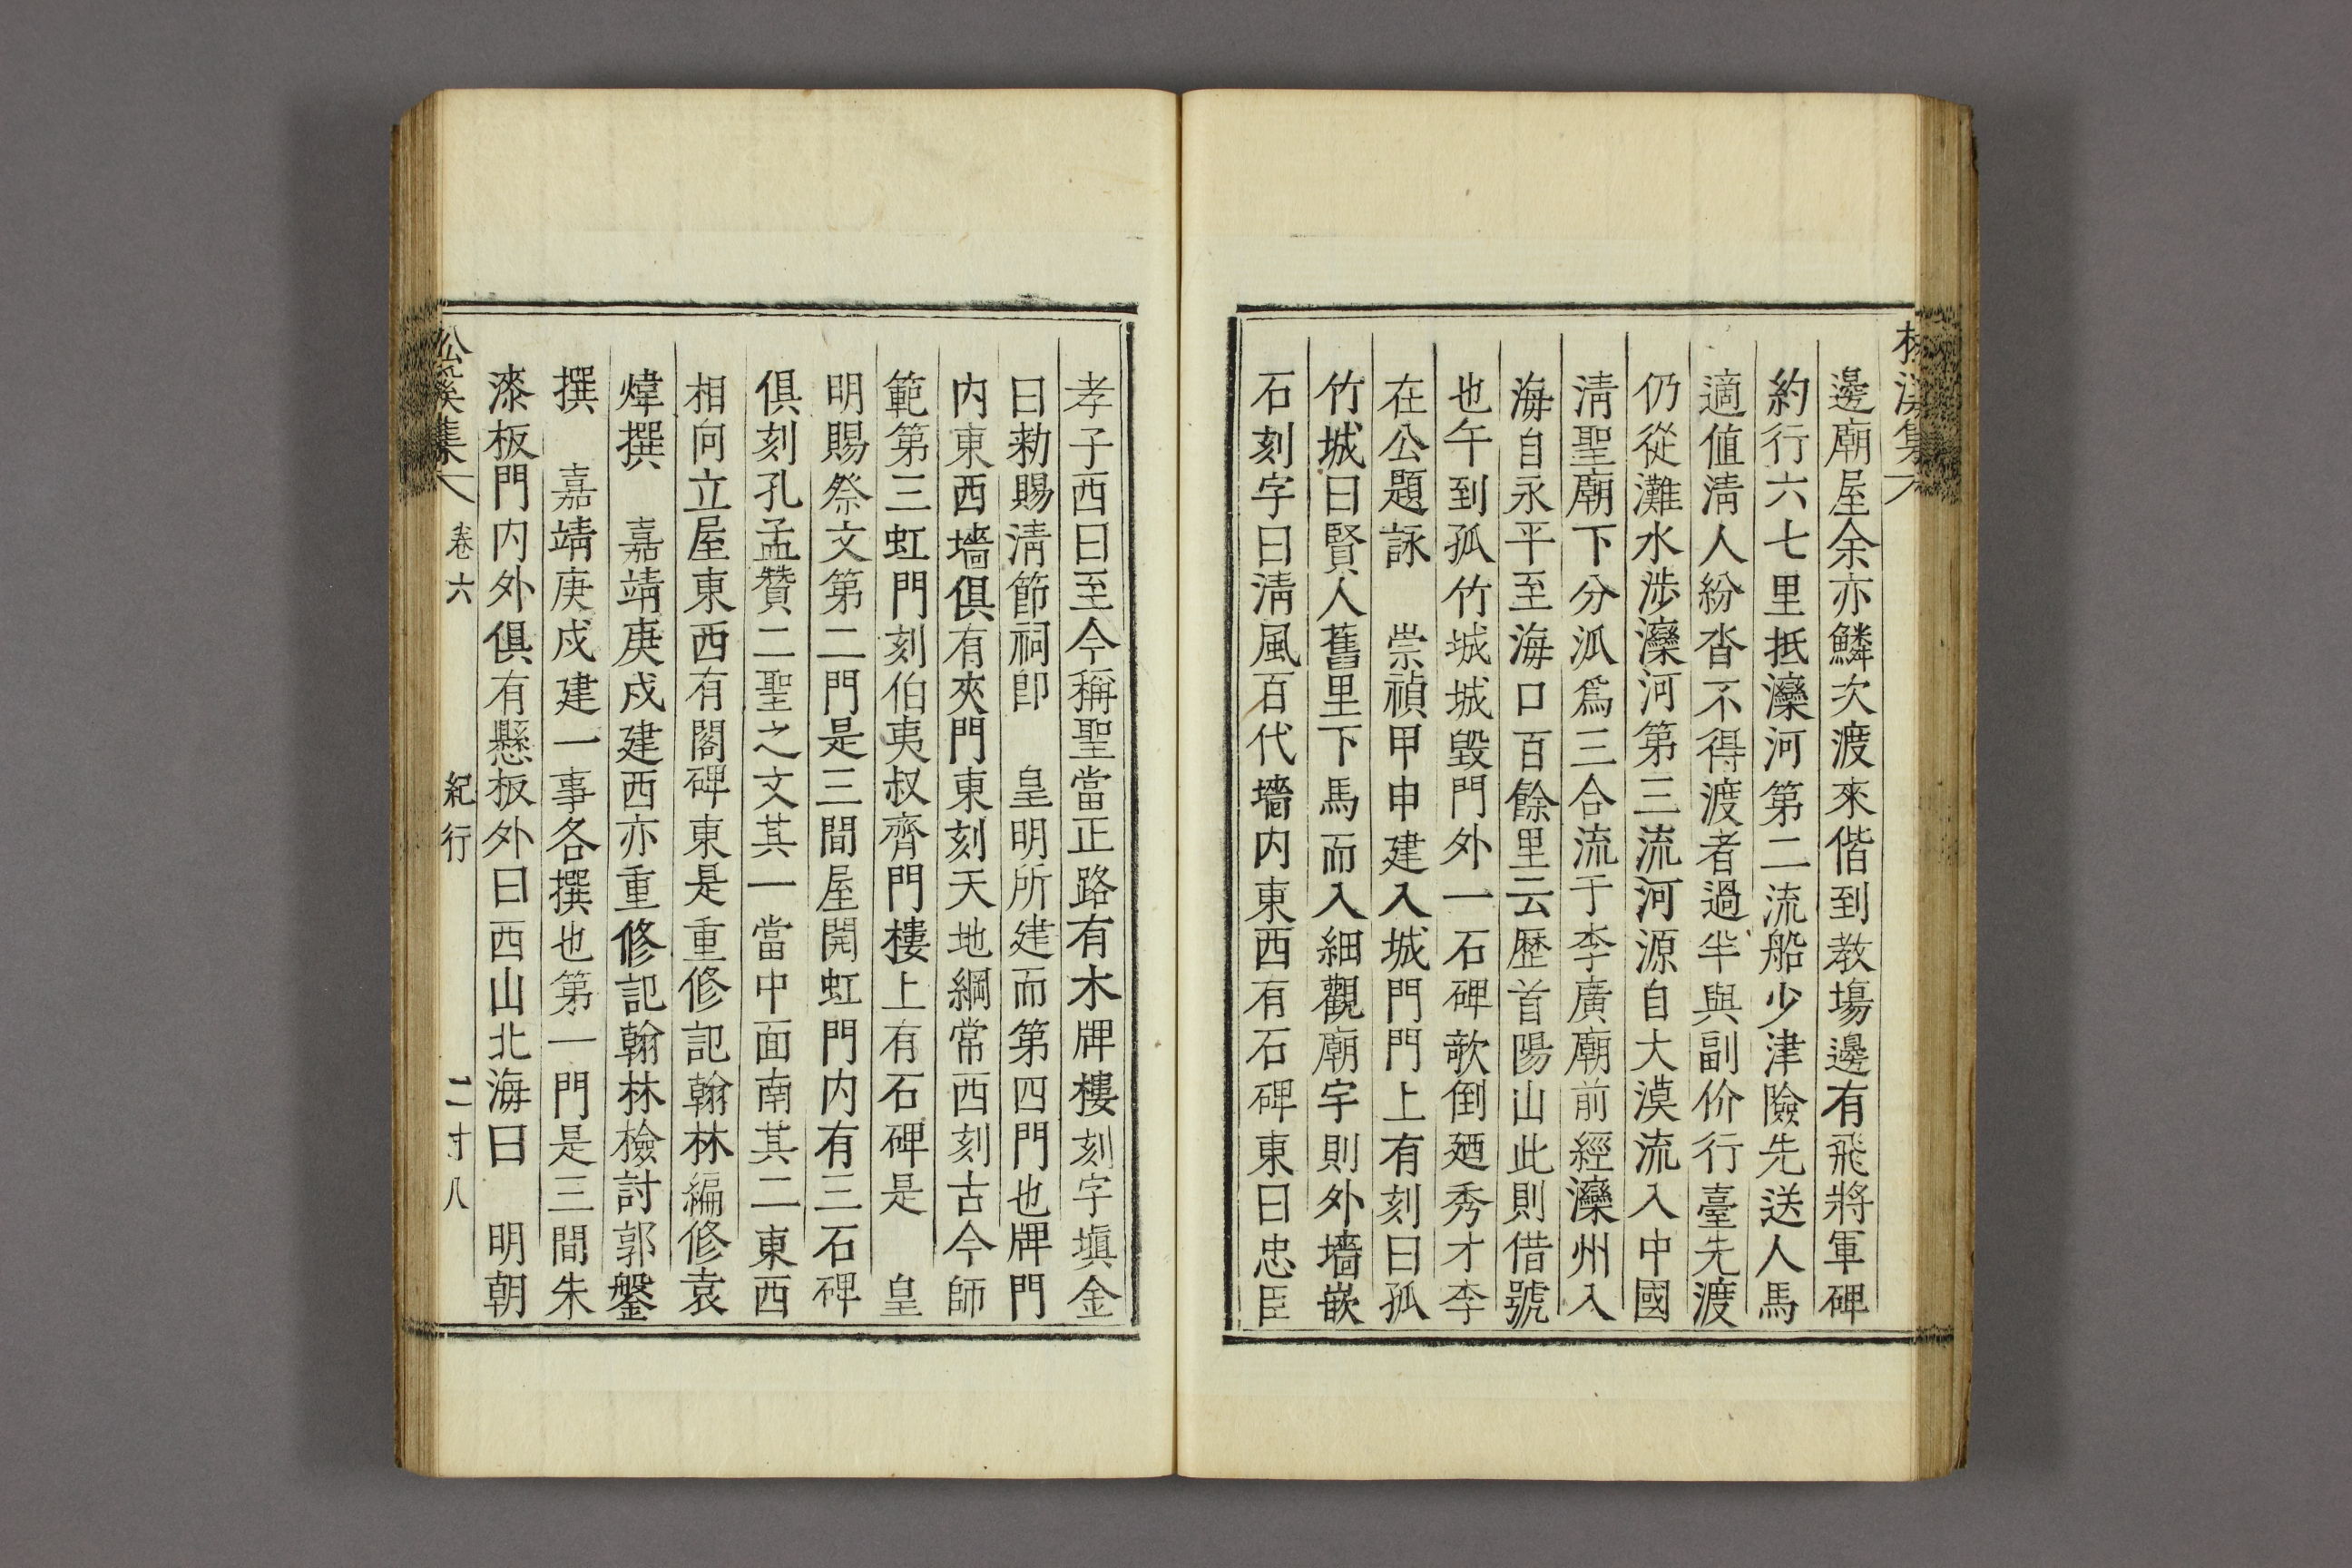 邊廟屋余亦鱗次渡來偕到教場邊有飛將軍碑
約行六七里抵灤河第二流船少津險先送人馬
適值淸人紛沓不得渡者過半與副价行臺先渡
仍從灘水涉灤河第三流河源自大漠流入中國
淸聖廟下分派爲三合流于李廣廟前經灤州入
海自永平至海口百餘里云歷首陽山此則借號
也午到孤竹城城毀門外一石碑欹倒廼秀才李
在公題詠　崇禎甲申建入城門門上有刻曰孤
竹城曰賢人舊里下馬而入細觀廟宇則外墻嵌
石刻字曰淸風百代墻内東西有石碑東曰忠臣
孝子西曰至今稱聖當正路有木牌樓刻字塡金
曰勑賜淸節祠卽　皇明所建而第四門也牌門
内東西墻俱有夾門東刻天地綱常西刻古今師
範第三虹門刻伯夷叔齊門樓上有石碑是　皇
明賜祭文第二門是三間屋開虹門内有三石碑
俱刻孔孟贊二聖之文其一當中面南其二東西
相向立屋東西有閣碑東是重修記翰林編修袁
煒撰　嘉靖庚戌建西亦重修記翰林檢討郭鏧
撰　嘉靖庚戌建一事各撰也第一門是三間朱
漆板門内外俱有懸板外曰西山北海曰　明朝
集 卷六 紀行 二十八